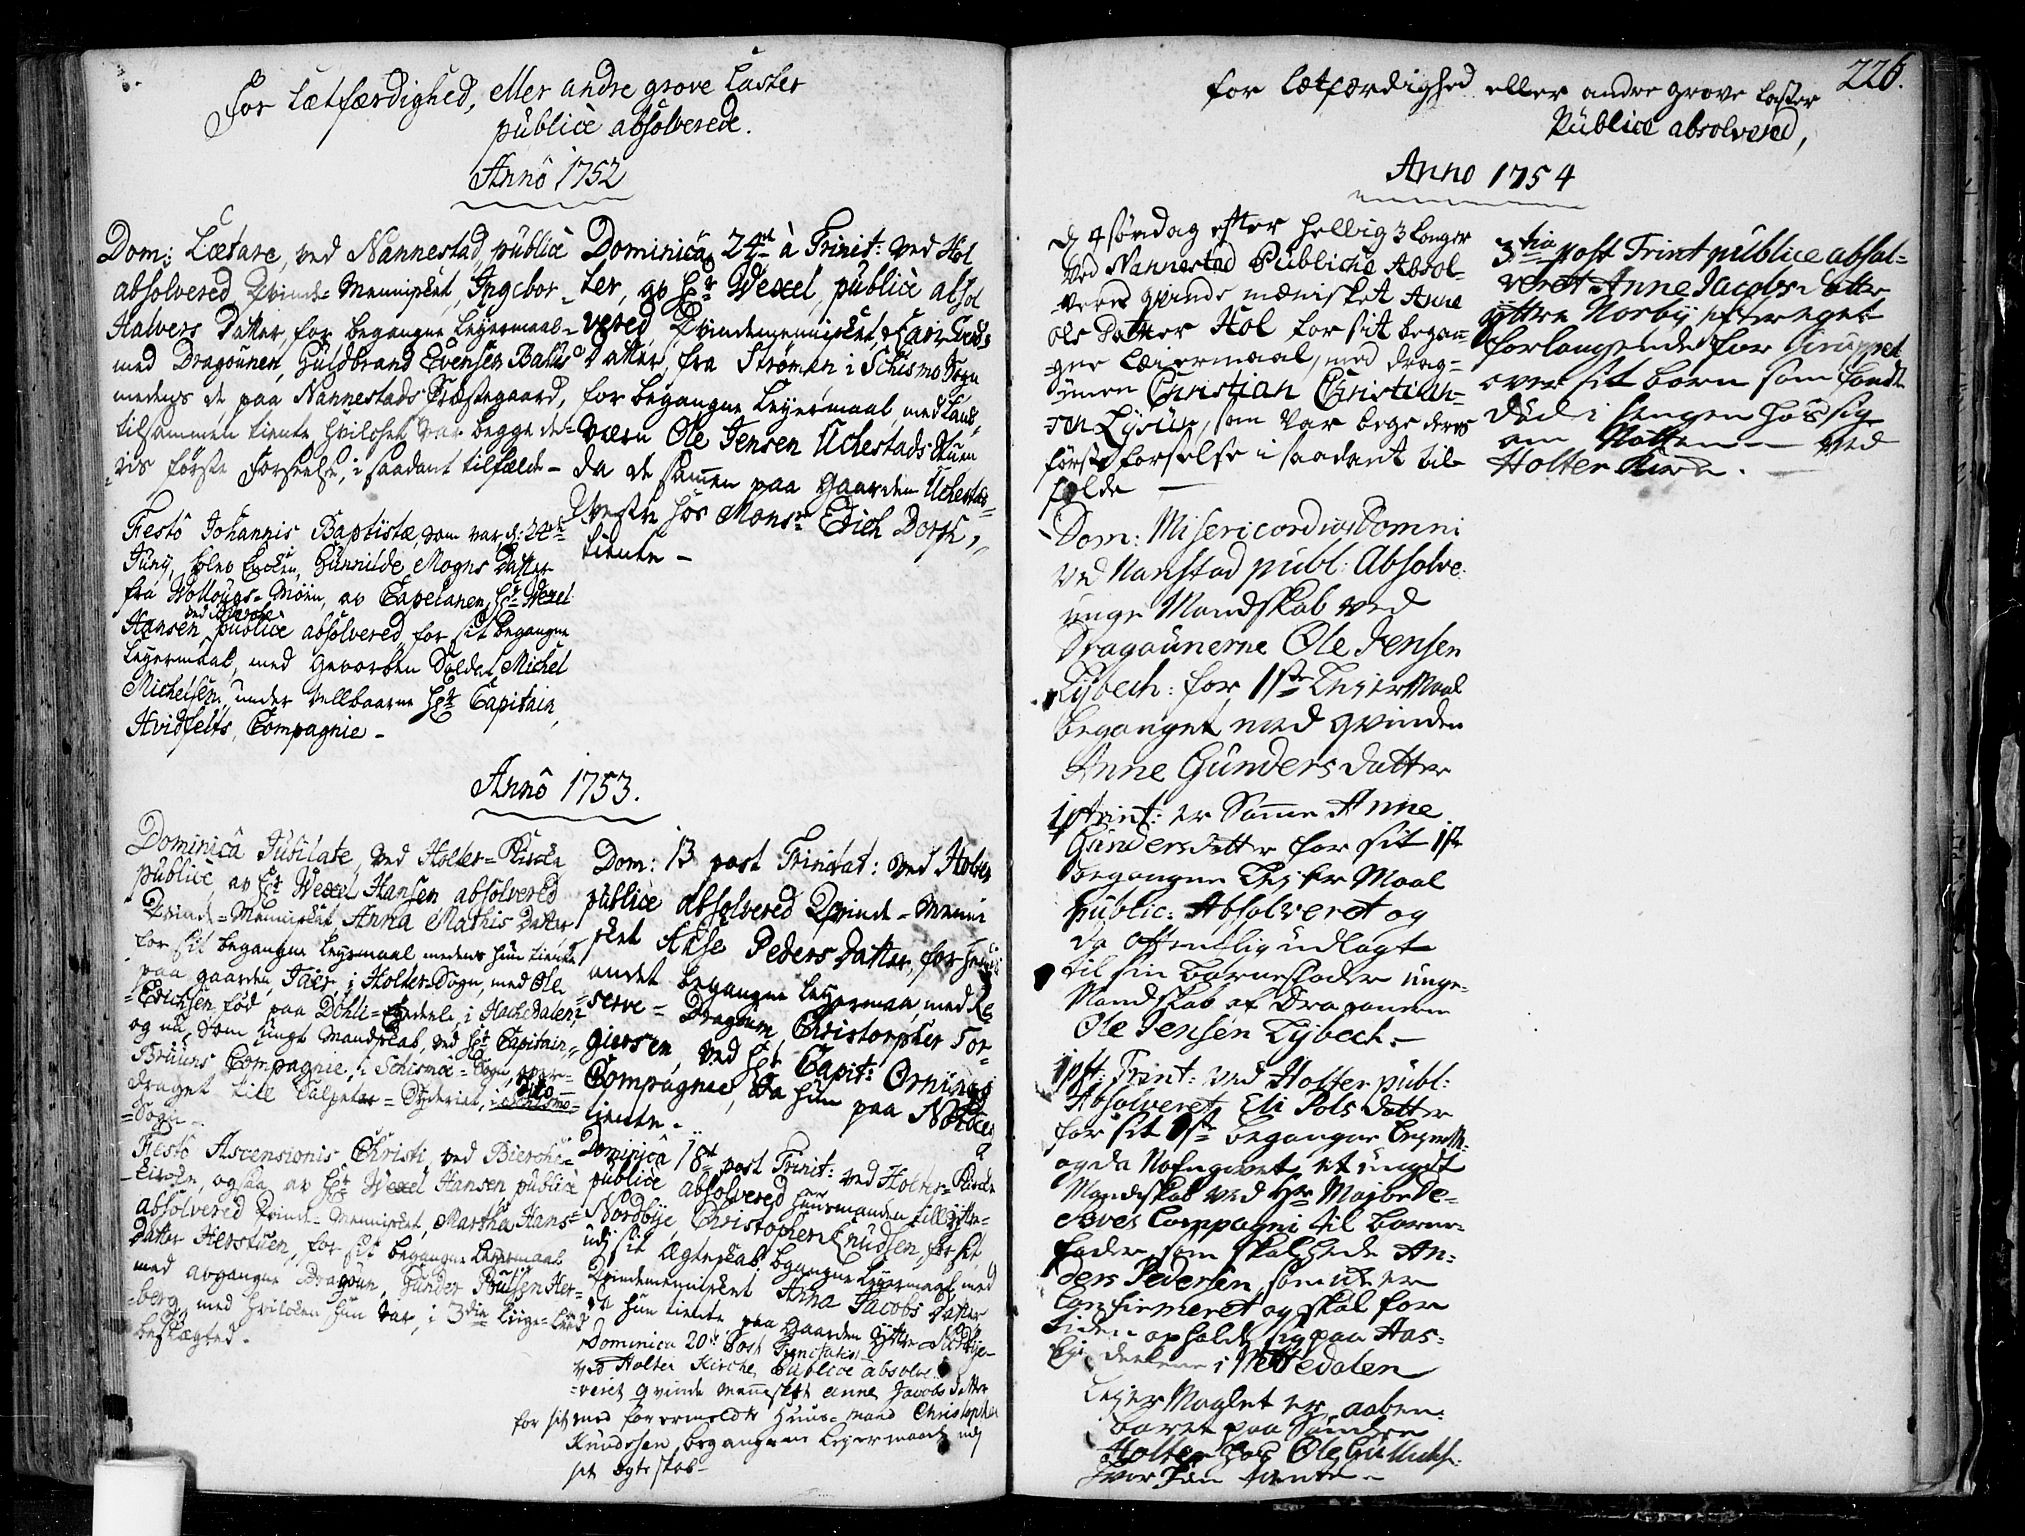 For Letfærdighed, eller andre grove Laster
publicè absolverede.
Annô 1752
Dom: Lætare, ved Nannestad, publicè
absolvered Qvinde-Mennisket, Ingebor
Halvers Datter, for begangne Leyermaal
med Dragounen, Guldbrand Evensen Bakke
medens de paa Nannestads Præstegaard,
tilsammen tiente, hvilchet var begge de-
ris første Forseelse, i saadant tilfælde -
Festô Johannis Baptistæ, som var d: 24de
Junij, blev Gunnilde Mogns Datter
fra Mollougs-Moen, av Capelanen, Hr: Wexel
ved
Hansen publicè absolvered for sit begangne
Leyermaal, med Hvorben Soldat Michel
Michelsen, under Vellbaarne Hr: Capitain
Hvidfelts, Compagnie -
Dominica 24de à Trinit: ved Hol
ter, av Hr: Wexel, publicè absol
vered, Qvindemennisket, Kari
Datter, fra Strømen i Schismo Sogn
for begangne Leyermaal, med Land,
værn Ole Jensen Uchestads
da de sammen paa Gaarden Uchestad
Vestre hos Monsr: Erich Dorph,
tiente -
Annô 1753.
Dominicâ Jubilate, ved Holter-Kirche
publicè, av Hr: Wexel Hansen absolvered
Qvinde-Mennisket, Anna Mathis Datter
for sit begangne Leyermaal medens hun tiente
paa gaarden, Jaer, i Holter-Sogn, med Ole
Erichsen, fød paa Dehli-Eedenle, i Hachedalen,
og nu, som ungt Mandskab, ved Hr: Capitain,
Bruuns Compagnie, i Schismo-Sogn, over-
draget till Salpeter-Syderiet, i
Sogn -
Festô Ascensionis Christi ved Bierche-
Kirche, ogsaa av Hr: Wexel Hansen publicè
absolvered Qvinde-Mennisket, Martha Hans-
Datter Herstuen, for sit begangne Leyermaal
med avgangne Dragoun, Gunder Hansen Her-
berg, med hvilchen hun var, i 3die Liige-Leed
beslægted.
Dom: 13 post Trinitat: ved Holter
publicè absolvered Qvinde-Menni
sket Aase Peders Datter, for
andet begangne Leyermaal, med Re
serve-Dragoun, Christopher Tor-
giersen, ved Hr: Capit: Ornings
Compagnie, da hun paa Nordeen
tiente.
Dominicâ 18de post Trinit: ved Holter-Kirche
publicè absolvered Huusmanden till Yttre-
Nordbye, Christopher Knudsen, for sit
udj sit Ægteskab begangne Leyermaal, med
Qvindemennisket Anna Jacobs Datter
da hun tiente paa Gaarden Yttre-Nordbye-
Dominica 20de Post Trinitatis
ved Holter Kirche, publice absol-
veret qvinde mennesket anne Jacobs Datter
for sit med forermeldte Huus-mand Christopher
Knudssen, begangene Leyermaal udj
sit ægteskab-
226.
for Letfærdighed eller andre grove Laster
Publice absolvered,
Anno 1754
d 4 Søndag efter hellig 3 konger
ved Nannestad Publiche Absol-
vered qvinde mænisket Anne
Ols Datter Hol for sit began-
gne Leiermaal, med drag-
unen Christian Christian-
sen Lycur, som var bege deres
første forseelse i saadant til-
fælde
Dom: Misericordias Domini
ved Nanstad publ: Absolve:
unge Mandskab ved
Dragounerne Ole Jensen
Lybech: for 1ste Leyer Maal
begangen med qvinden
Anne Gunders datter
1 p Trint: er Same Anne
Gundersdatter for sit 1ste
begangne Leyer Maal
public: Absolveret og
da offentlig udlagt
til sin barnefader unge-
Mandskab af Dragonerne
Ole Jensen Lybech.-
1 pst: Trint: ved Holter publ:
Absolveret Eli Pols datter
for sit 1ste begangne Leyer M:
og da Nafngivet et ungt
Mandskab ved Hr: Major De-
Compagni til barne-
fader, som skal hede An-
ders Pedersen, som ut er
Confirmeret og skal for
tiden opholde sig paa Aas-
i Nittedalen
Leyer Maalet er, aaben-
baret paa Søndre
Holter hos Ole
hvor hun tiente -
3tia post Trint publice absol-
veret Anne Jacobs datter
yttre Norby efter eget
forlangende for
over sit barn som fandt
död i sengen hos sig
om Natten - ved
Holter Kirche.